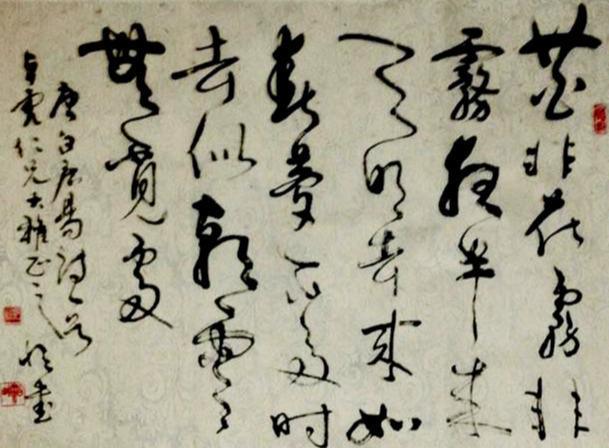 花非花霧非
霧夜半来
天明去来如
春夢不多时
去似朝雲
無覓處
唐白居易詩一首
仁兄大雅正之
書